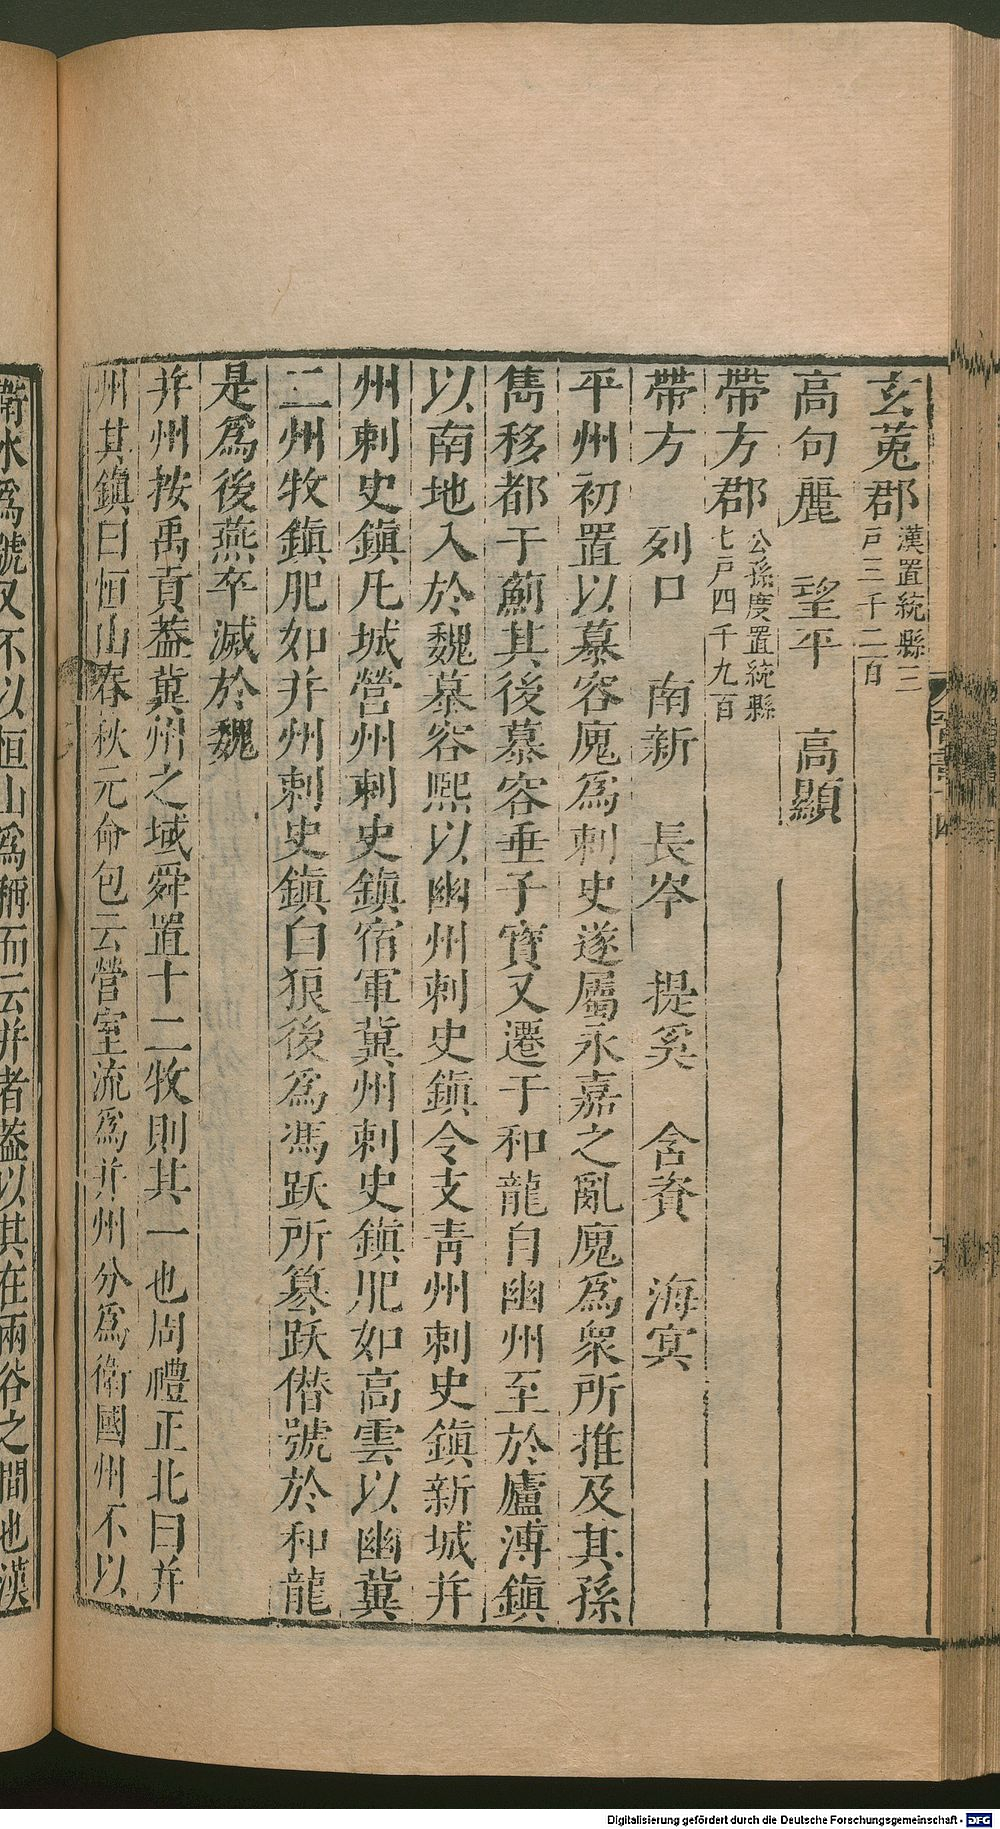 玄菟郡漢置統縣三戸三千二百
高句麗　望平　高顯
帶方郡公孫度置統縣七戸四千九百
帶方　列口　南新　長岑　提奚　含資　海冥
平州初置以慕容廆爲刺史遂屬永嘉之亂廆爲衆所推及其孫
雋移都于薊其後慕容垂子寶又遷于和龍自幽州至於廬溥鎮
以南地入於魏慕容熙以幽州刺史鎮令支青州刺史鎮新城并
州刺史鎮凡城營州刺史鎮宿軍冀州刺史鎮肥如高雲以幽冀
二州牧鎮肥如并州刺史鎮白狼後爲馮跋所簒跋僭號於和龍
是爲後燕卒滅於魏
并州按禹貢葢冀州之域舜置十二牧則其一也周禮正北曰并
州其鎮曰恒山春秋元命包云營室流爲并州分爲衞國州不以
衞水爲號又不以恒山爲稱而云并者葢以其在兩谷之間也漢
Digitalisierung gefördert durch die Deutsche Forschungsgemeinschaft - DFG